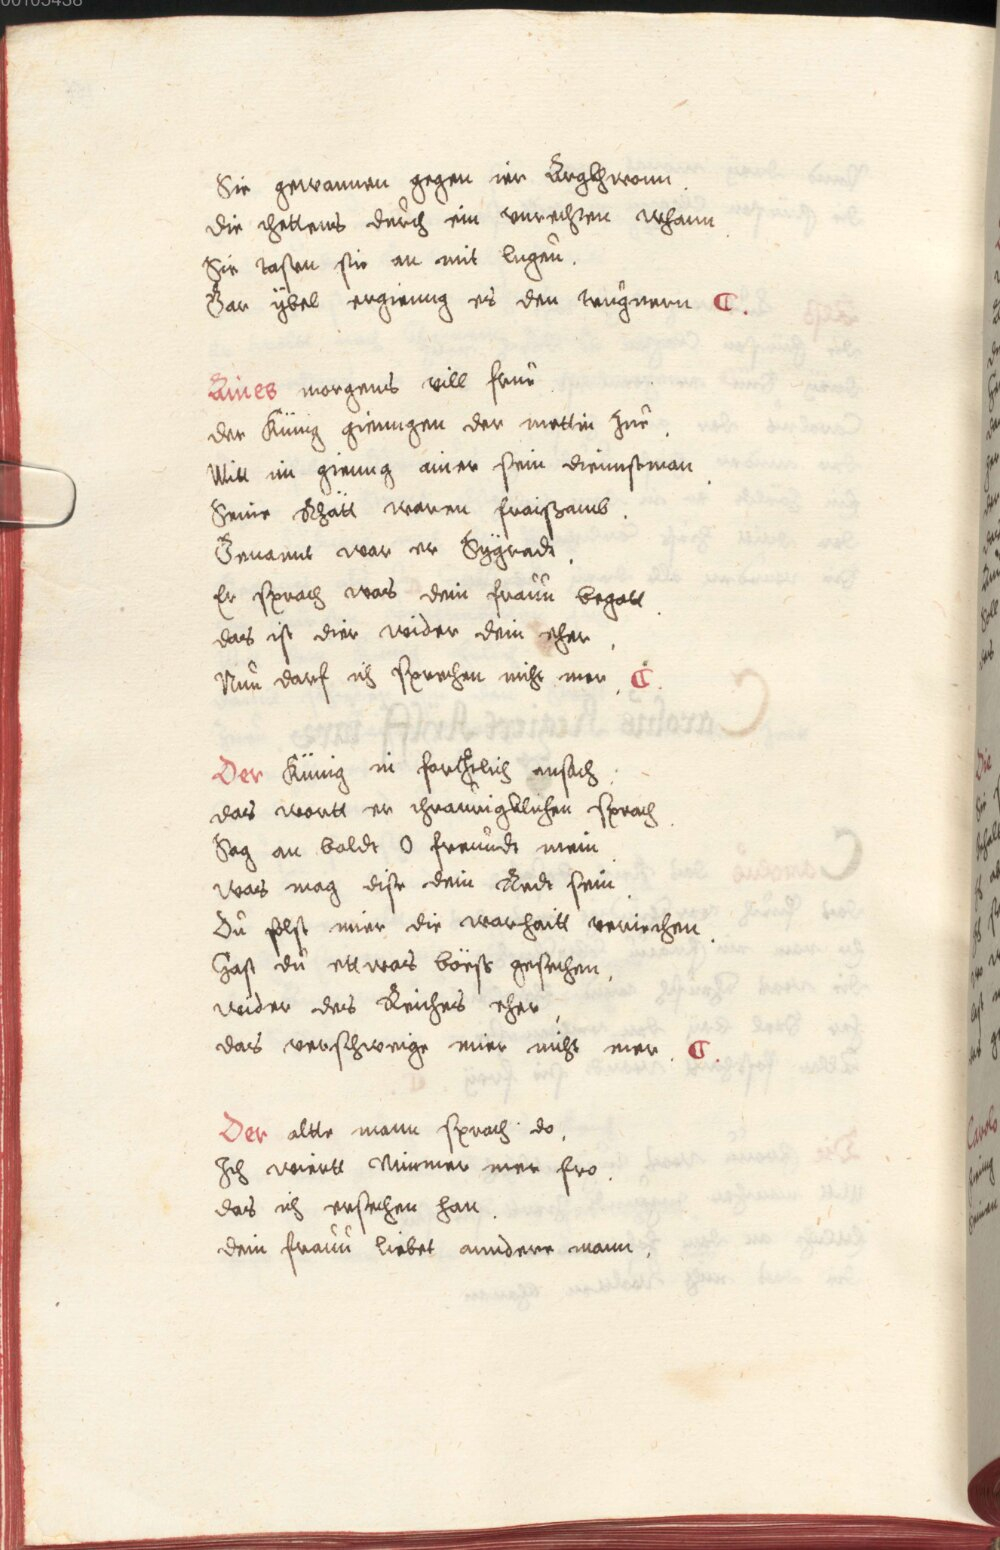 Sie gewannen gegen ier Arghwonn.
die chettens durch ein unrechten whann.
Sie tasten sie an mit lugen.
Gar ÿbel ergienng es den trugnern C.
Aines morgens vill frue
der Künig gienngen der mettin zue.
Mitt im gienng ainer sein diennstman.
Seine Rhätt waren fraissamb.
Genannt war er Sygradt.
Er sprach was dein frauu begatt.
das ist dier wider dein eher.
Nun darf ich sprechen nicht mer. C.
Der Künig in forchtlich ansach.
das wortt er thraurigklichen sprach.
Sag an baldt O freundt mein.
was mag dise dein Redt sein.
Du solst mier die warhaitt veriechen.
Hast du ettwas böess gesechen.
wider des Reiches eher.
das verschweige mier nicht mer. C.
Der altte mann sprach do.
Ich wiertt Nimmer mer fro.
das ich ersechen han.
dein frauu liebet anndere mann.